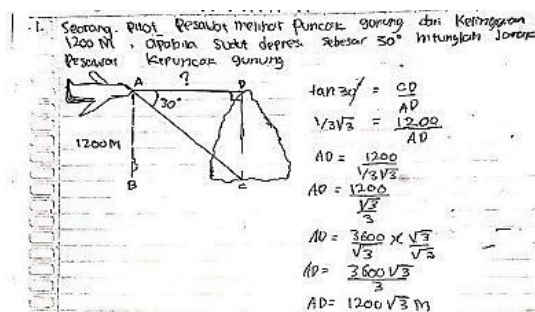 1. Seorang pilot pesawat melihat puncak gunung dari ketinggian
1200 M, apabila sudut depresi sebesar 30° hitunglah jarak
pesawat kepuncak gunung
A ? D
30°
1200 M
B C
tan 30° = CD/AD
1/3√3 = 1200/AD
AD = 1200/(1/3√3)
AD = 1200/(√3/3)
AD = 3600/√3 × √3/√3
AD = 3600√3/3
AD = 1200√3 M